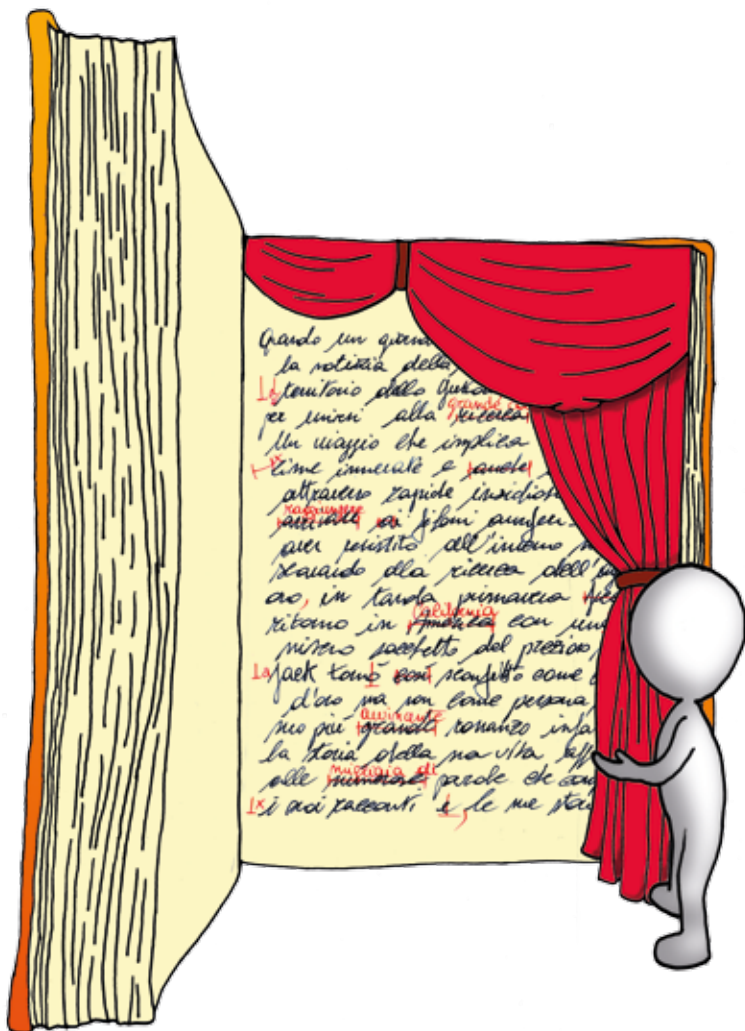 Quando un giorno
la notizia della
territorio dello
grande
per unirsi alla ricerca
Un viaggio che implica
cime innevate e anche
attraverso rapide insidiose
raggiungere
arrivare ai
aver resistito all'interno
scavando alla ricerca dell'
oro, in tarda primavera
California
ritorno in America con un
misero sacchetto del prezioso
Jack tornò così sconfitto come
d'oro ma non come persona
avvincente
suo più grande romanzo
la storia della sua vita
migliaia di
alle numerose parole che
i suoi racconti e le sue